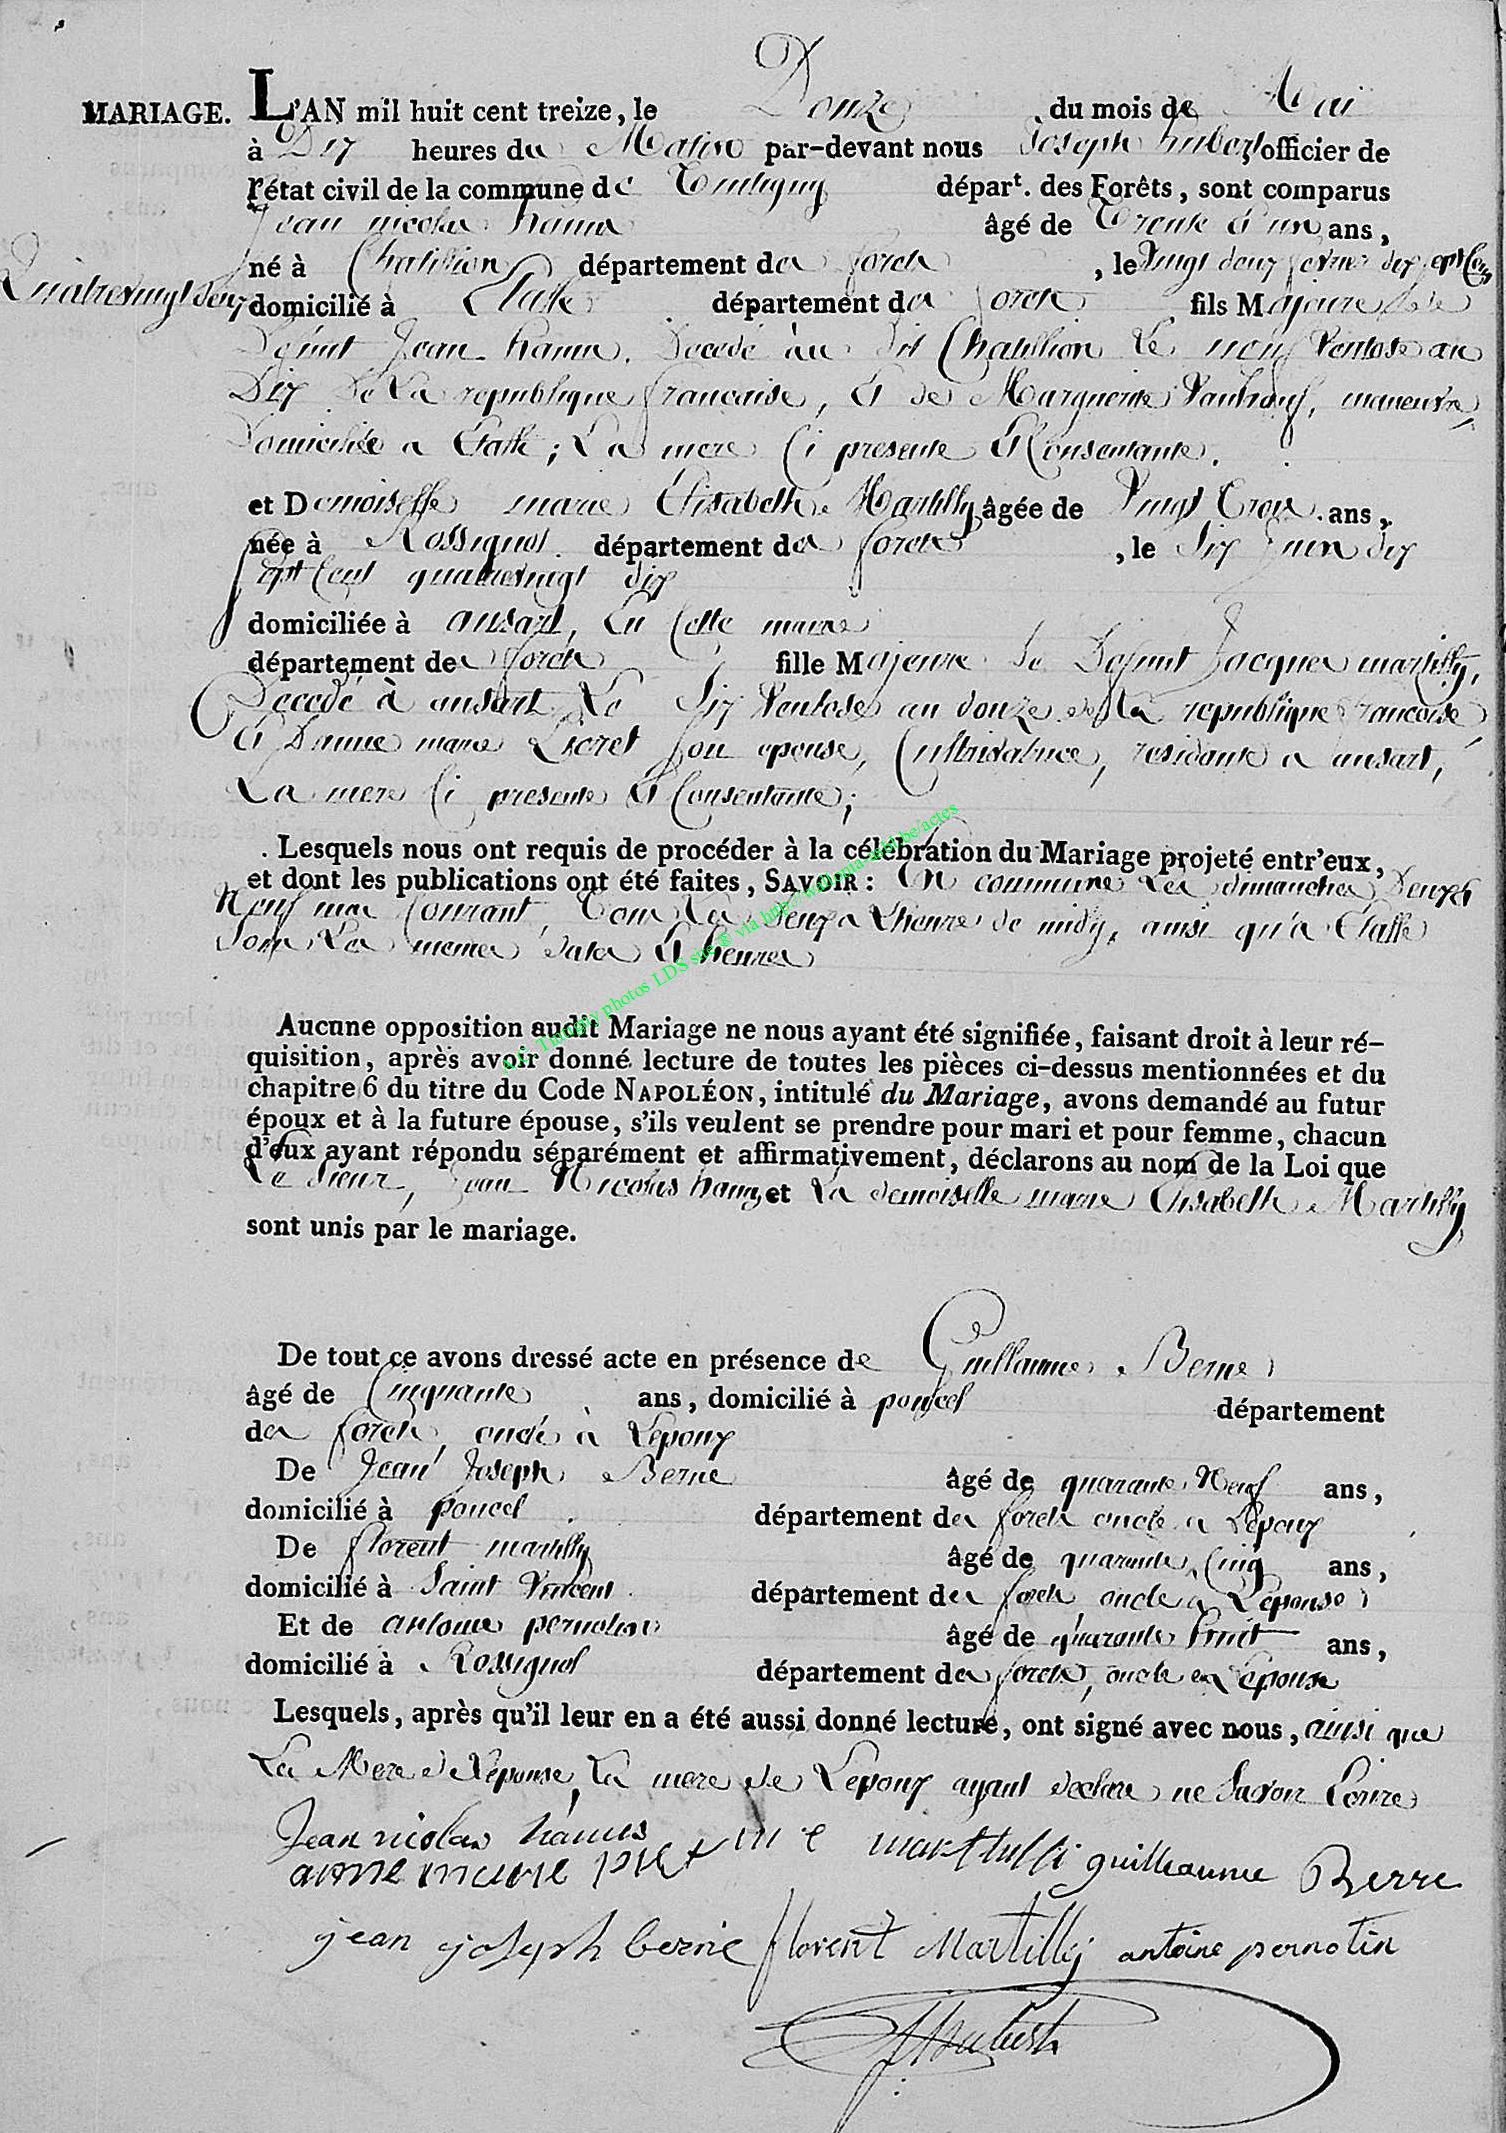 MARIAGE. L'AN mil huit cent treize, le Douze du mois de Mai
à Dix heures du Matin par-devant nous Joseph hubert officier de
l'état civil de la commune de Tintigny départ. des Forêts, sont comparus
Jean nicolas hanus âgé de Trente et un ans,
né à Chatillion département des forets, le Vingt deux fevrier dix sept Cent
Quatrevingt deux
domicilié à Etalle département des forets fils Majeure de
Defunt Jean hanus, Decedé au dit Chatillion le neuf Ventose an
Dix De La republique francaise, Et de Marguerite, maneuvre,
Domiciliée a Etalle; La mere Ci presente Et Consentante.
et Demoiselle marie Elisabeth Martilly âgée de Vingt Trois ans,
née à Rossignol département des forets, le Six Juin dix
sept Cent quatrevingt dix
domiciliée à ansart, En Cette mairie
département des forets fille Majeure de Defunt Jacques martilly,
Decedé à ansart Le Six Ventose an douze de la republique francoise,
Et D'anne marie son epouse, Cultivatrice, residante a ansart,
La mere Ci presente Et Consentante;
Lesquels nous ont requis de procéder à la célébration du Mariage projeté entr'eux,
et dont les publications ont été faites, SAVOIR: En commune Les dimanches Deux et
Neuf mai Courant, Tous Les Deux a L'heure de midy, ainsi qu'a Etalle
Sous Les memes dates Et heures
Aucune opposition audit Mariage ne nous ayant été signifiée, faisant droit à leur ré-
quisition, après avoir donné lecture de toutes les pièces ci-dessus mentionnées et du
chapitre 6 du titre du Code NAPOLÉON, intitulé du Mariage, avons demandé au futur
époux et à la future épouse, s'ils veulent se prendre pour mari et pour femme, chacun
d'eux ayant répondu séparément et affirmativement, déclarons au nom de la Loi que
Le Sieur, Jean Nicolas hanus et La demoiselle marie Elisabeth Martilly,
sont unis par le mariage.
De tout ce avons dressé acte en présence de Guillaume Berne
âgé de Cinquante ans, domicilié à poncel département
des forets, oncle à L'epoux
De Jean Joseph Berne âgé de quarante Neuf ans,
domicilié à poncel département des forets oncle a L'epoux
De florent martilly âgé de quarante Cinq ans,
domicilié à Saint Vincent département des forets oncle a L'epouse
Et de antoine pernotin âgé de quarante huit ans,
domicilié à Rossignol département des forets, oncle a L'epouse
Lesquels, après qu'il leur en a été aussi donné lecture, ont signé avec nous, ainsi que
La Mere de L'epouse, La mere de L'epoux ayant declaré ne Savoir Ecrire
Jean nicolas hanus m e marttilli guilleaume Berre
anne marie
jean joseph berne florent Martilly antoine pernotin
JHubert
A.C. Tintigny photos LDS site ® via http://wallonia-asbl.be/actes